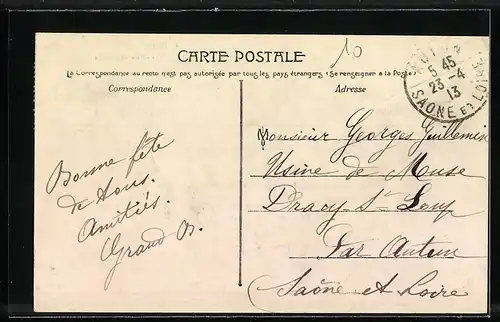 CARTE POSTALE
10
La Correspondance au recto n'est pas autorisée par tous les pays étrangers (Se renseigner à la Poste)
Correspondance
Adresse
5 45
23-4
13
SAONE ET LOIRE
Bonne fête
de tous.
Amitiés.
Grand
Monsieur Georges Guillemin
Usine de Muse
Dracy St Loup
Par Autun
Saône et Loire